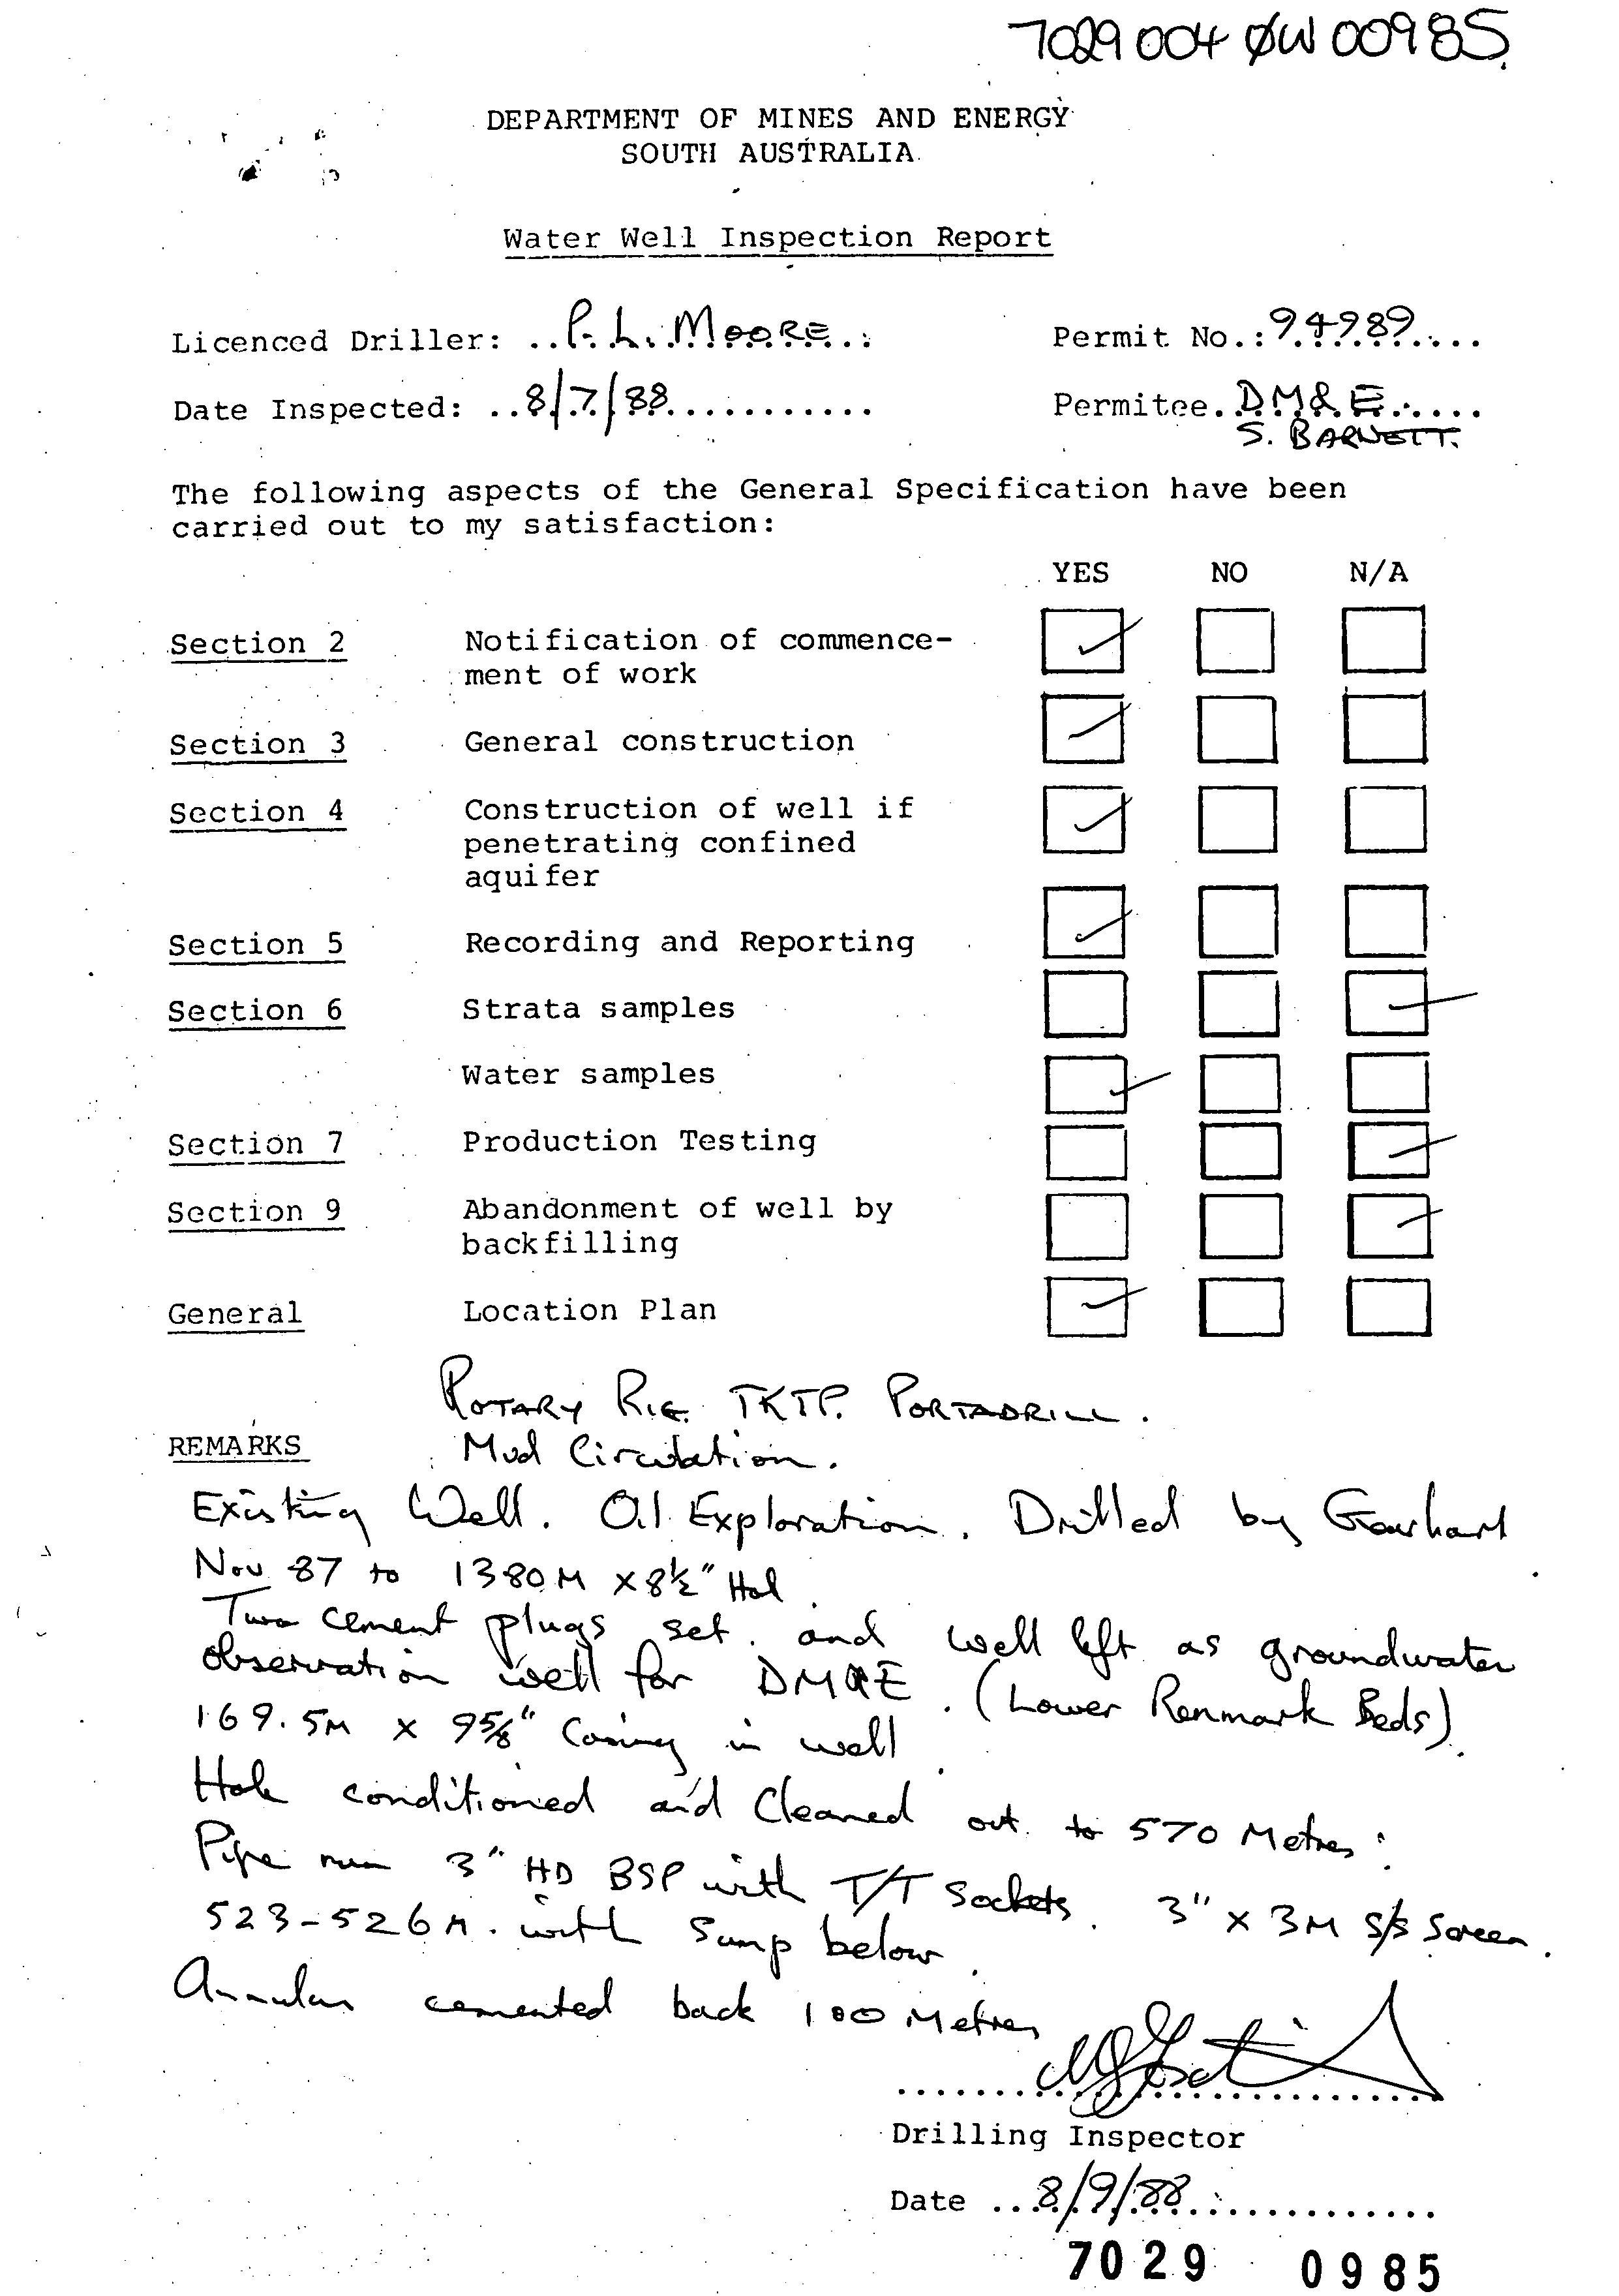 7029 004 ØW 00985
DEPARTMENT OF MINES AND ENERGY
SOUTH AUSTRALIA
Water Well Inspection Report
Licenced Driller: ..P. L. MOORE.. Permit No.: 94989....
Date Inspected: ..8/7/88........... Permitee. DM&E......
S. BARNETT.
The following aspects of the General Specification have been
carried out to my satisfaction:
YES NO N/A
Section 2 Notification of commence-
ment of work
Section 3 General construction
Section 4 Construction of well if
penetrating confined
aquifer
Section 5 Recording and Reporting
Section 6 Strata samples
Water samples
Section 7 Production Testing
Section 9 Abandonment of well by
backfilling
General Location Plan
ROTARY RIG. TKTP. PORTADRILL.
REMARKS Mud Circulation.
Existing Well. Oil Exploration. Drilled by Gearhart
Nov 87 to 1380M x 8½" Hol.
Two cement plugs set. and well left as groundwater
observation well for DM&E. (Lower Renmark Beds).
169.5M x 9⅝" Casing in well.
Hole conditioned and Cleaned out to 570 Metres.
Pipe run 3" HD BSP with T/T Sockets. 3" x 3M S/S Screen.
523-526M. with Sump below.
Annulus cemented back 100 Metres
Drilling Inspector
Date ...8/9/88................
7029 0985